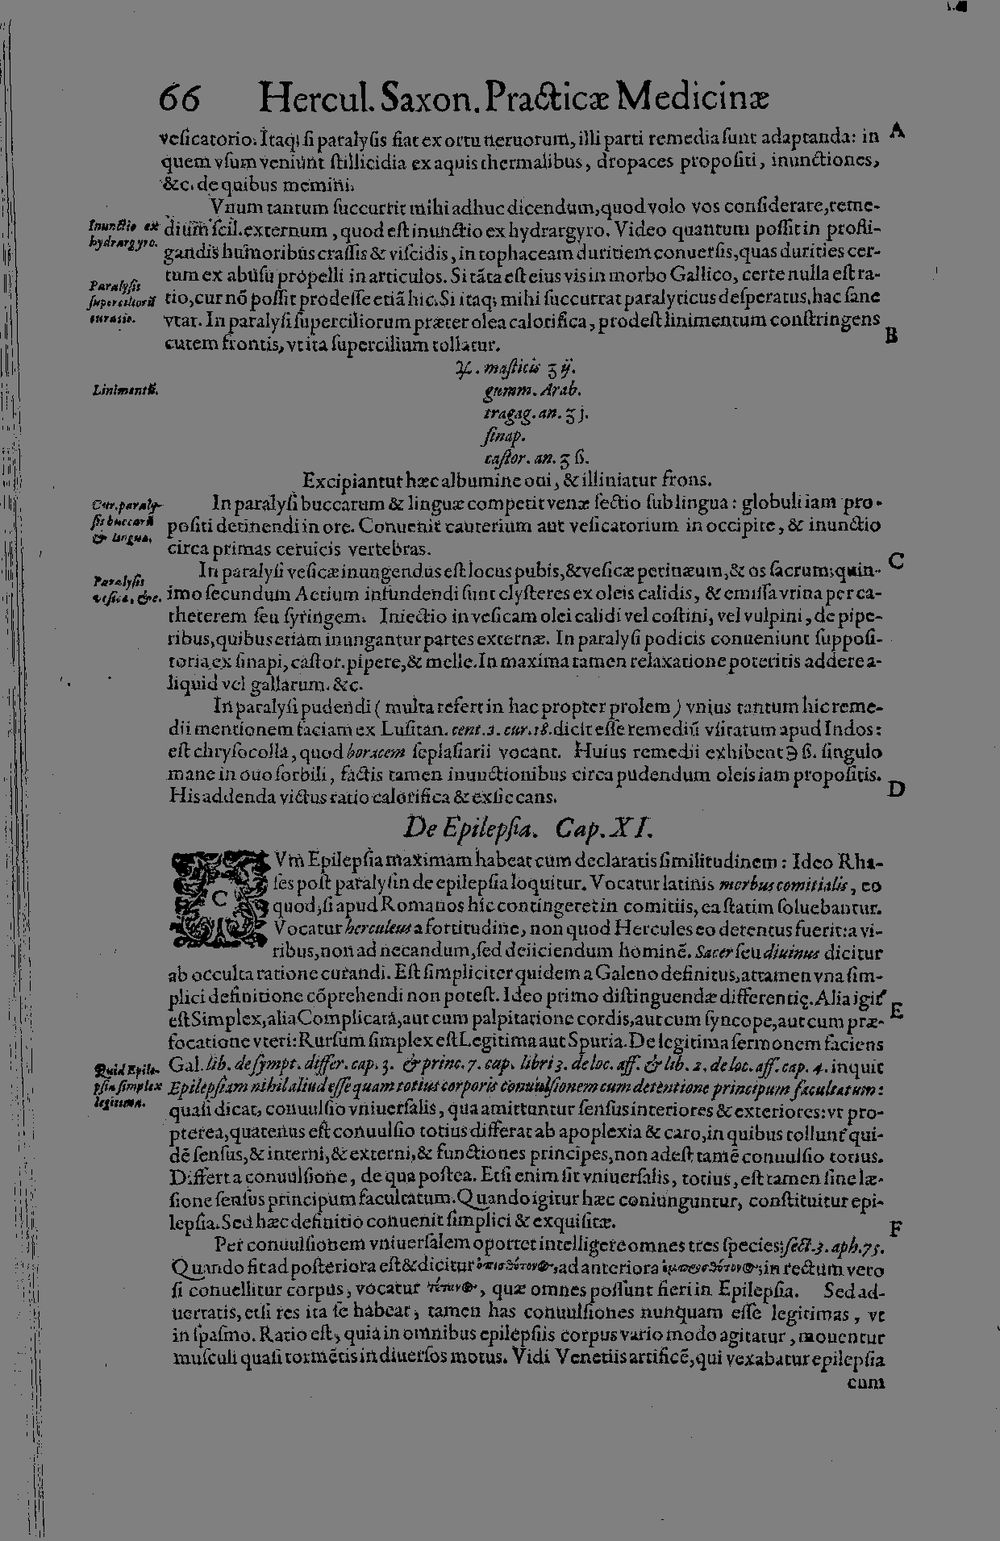 66 Hercul. Saxon. Practicæ Medicinæ
veſicatorio. Itaq; ſi paralyſis fiat ex ortu neruorum, illi parti remedia ſunt adaptanda: in A
quem vſum veniunt ſtillicidia ex aquis thermalibus, dropaces propoſiti, inunctiones,
&c. de quibus memini.
Vnum tantum ſuccurrit mihi adhuc dicendum, quod volo vos conſiderare, reme-
Inunctio ex
hydrargyro.
dium ſcil. externum, quod eſt inunctio ex hydrargyro. Video quantum poſſit in profli-
gandis humoribus craſſis & viſcidis, in tophaceam duritiem conuerſis, quas durities cer-
tum ex abuſu propelli in articulos. Si tãta eſt eius vis in morbo Gallico, certe nulla eſt ra-
Paralyſis
ſuperciliorũ
curatio.
tio, cur nõ poſſit prodeſſe etiã hic. Si itaq; mihi ſuccurrat paralyticus deſperatus, hac ſane
vtar. In paralyſi ſuperciliorum præter olea calorifica, prodeſt linimentum conſtringens
B
cutem frontis, vt ita ſupercilium tollatur.
♃. maſticis ʒ ij.
Linimentũ.
gumm. Arab.
tragag. an. ʒ j.
ſinap.
caſtor. an. ʒ ß.
Excipiantur hæc albumine oui, & illiniatur frons.
Cur. paraly-
ſis buccarũ
& lingua.
In paralyſi buccarum & linguæ competit venæ ſectio ſub lingua: globuli iam pro-
poſiti detinendi in ore. Conuenit cauterium aut veſicatorium in occipite, & inunctio
circa primas ceruicis vertebras.
Paralyſis
veſica, &c.
In paralyſi veſicæ inungendus eſt locus pubis, & veſicæ perinæum, & os ſacrum; quin- C
imo ſecundum Aetium infundendi ſunt clyſteres ex oleis calidis, & emiſſa vrina per ca-
theterem ſeu ſyringem. Iniectio in veſicam olei calidi vel coſtini, vel vulpini, de pipe-
ribus, quibus etiam inungantur partes externæ. In paralyſi podicis conueniunt ſuppoſi-
toria ex ſinapi, caſtor. pipere, & melle. In maxima tamen relaxatione poteritis addere a-
liquid vel gallarum. &c.
In paralyſi pudendi (multa refert in hac propter prolem) vnius tantum hic reme-
dii mentionem faciam ex Luſitan. cent. 3. cur. 18. dicit eſſe remediũ vſitatum apud Indos:
eſt chryſocolla, quod boracem ſeplaſiarii vocant. Huius remedii exhibent ℈ ß. ſingulo
mane in ouo ſorbili, factis tamen inunctionibus circa pudendum oleis iam propoſitis.
D
His addenda victus ratio calorifica & exſiccans.
De Epilepſia. Cap. XI.
CVm Epilepſia maximam habeat cum declaratis ſimilitudinem: Ideo Rha-
ſes poſt paralyſin de epilepſia loquitur. Vocatur latinis morbus comitialis, eo
quod, ſi apud Romanos hic contingeret in comitiis, ea ſtatim ſoluebantur.
Vocatur herculeus a fortitudine, non quod Hercules eo detentus fuerit: a vi-
ribus, non ad necandum, ſed deiiciendum hominẽ. Sacer ſeu diuinus dicitur
ab occulta ratione curandi. Eſt ſimpliciter quidem a Galeno definitus, attamen vna ſim-
plici definitione cõprehendi non poteſt. Ideo primo diſtinguendæ differentię. Alia igit᷑
E
eſt Simplex, alia Complicata, aut cum palpitatione cordis, aut cum ſyncope, aut cum præ-
focatione vteri: Rurſum ſimplex eſt Legitima aut Spuria. De legitima ſermonem faciens
Quid Epile-
pſia ſimplex
legitima.
Gal. lib. de ſympt. differ. cap. 3. & princ. 7. cap. libri 3. de loc. aff. & lib. 2. de loc. aff. cap. 4. inquit
Epilepſiam nihil aliud eſſe quam totius corporis conuulſionem cum detentione principum facultatum:
quaſi dicat, conuulſio vniuerſalis, qua amittuntur ſenſus interiores & exteriores: vt pro-
pterea, quatenus eſt conuulſio totius differat ab apoplexia & caro, in quibus tollunt᷑ qui-
dẽ ſenſus, & interni, & externi, & functiones principes, non adeſt tamẽ conuulſio totius.
Differt a conuulſione, de qua poſtea. Etſi enim ſit vniuerſalis, totius, eſt tamen ſine læ-
ſione ſenſus principum facultatum. Quando igitur hæc coniunguntur, conſtituitur epi-
lepſia. Sed hæc definitio conuenit ſimplici & exquiſitæ.
F
Per conuulſionem vniuerſalem oportet intelligere omnes tres ſpecies; ſect. 3. aph. 75.
Quando fit ad poſteriora eſt & dicitur ὀπισθότονος, ad anteriora ἐμπροσθότονος, in rectum vero
ſi conuellitur corpus, vocatur τέτανος, quæ omnes poſſunt fieri in Epilepſia. Sed ad-
uertatis, etſi res ita ſe habeat, tamen has conuulſiones nunquam eſſe legitimas, vt
in ſpaſmo. Ratio eſt, quia in omnibus epilepſiis corpus vario modo agitatur, mouentur
muſculi quaſi tormẽtis in diuerſos motus. Vidi Venetiis artificẽ, qui vexabatur epilepſia
cum